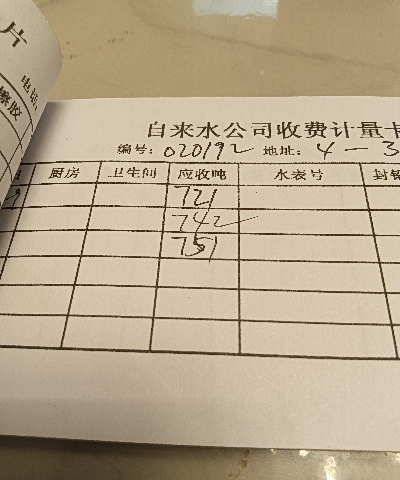 片
电话
擦胶
自来水公司收费计量卡
编号: 020192 地址: 4-3
厨房 卫生间 应收吨 水表号 封
721
742
751